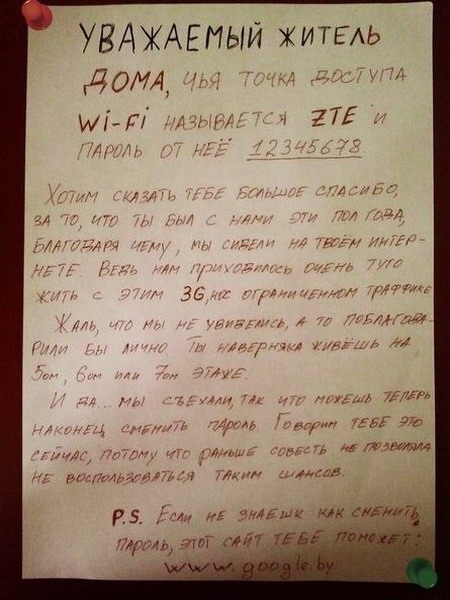 УВАЖАЕМЫЙ ЖИТЕЛЬ
ДОМА, ЧЬЯ ТОЧКА ДОСТУПА
Wi-Fi НАЗЫВАЕТСЯ ZTE И
ПАРОЛЬ ОТ НЕЁ 12345678.
ХОТИМ СКАЗАТЬ ТЕБЕ БОЛЬШОЕ СПАСИБО,
ЗА ТО, ЧТО ТЫ БЫЛ С НАМИ ЭТИ ПОЛ ГОДА,
БЛАГОДАРЯ ЧЕМУ, МЫ СИДЕЛИ НА ТВОЁМ ИНТЕР-
НЕТЕ. ВЕДЬ НАМ ПРИХОДИЛОСЬ ОЧЕНЬ ТУГО
ЖИТЬ С ЭТИМ 3G, ОГРАНИЧЕННОМ ТРАФФИКЕ
ЖАЛЬ, ЧТО МЫ НЕ УВИДЕЛИСЬ, А ТО ПОБЛАГОДА-
РИЛИ БЫ ЛИЧНО. ТЫ НАВЕРНЯКА ЖИВЁШЬ НА
5ОМ, 6ОМ ИЛИ 7ОМ ЭТАЖЕ.
И ДА... МЫ СЪЕХАЛИ, ТАК ЧТО МОЖЕШЬ ТЕПЕРЬ
НАКОНЕЦ СМЕНИТЬ ПАРОЛЬ. ГОВОРИМ ТЕБЕ ЭТО
СЕЙЧАС, ПОТОМУ ЧТО РАНЬШЕ СОВЕСТЬ НЕ ПОЗВОЛЯЛА
НЕ ВОСПОЛЬЗОВАТЬСЯ ТАКИМ ШАНСОМ.
P.S. ЕСЛИ НЕ ЗНАЕШЬ КАК СМЕНИТЬ
ПАРОЛЬ, ЭТОТ САЙТ ТЕБЕ ПОМОЖЕТ:
www.google.by